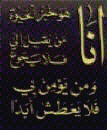 أنا
هو خبز الحياة
من يقبل إلي
فلا يجوع
ومن يؤمن بي
فلا يعطش أبدا